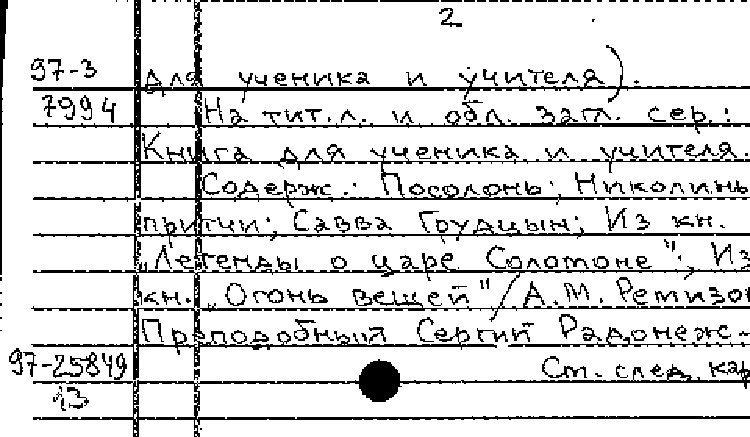 2
97-3 для ученика и учителя).
7994 На тит.л. и обл. загл. сер.:
Книга для ученика и учителя.
Содерж.: Посолонь; Николины
притчи; Савва Грудцын; Из кн.
„Легенды о царе Соломоне"; Из
кн. „Огонь вещей"/А.М. Ремизо
Преподобный Сергий Радонеж-
97-25849 См. след. кар
13